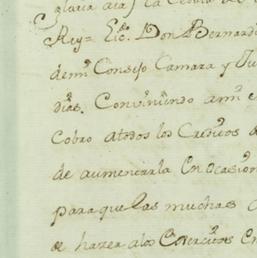 glueia acaJ la Cedula de
Rey= Eic.º Don Bernard
demi Consejo Camara y Ju
dias. Conviniendo ami e
Cobro atodos los Creditos
de aumentarla En ocasion
para que las muchas
de hazer alos Exercitos En